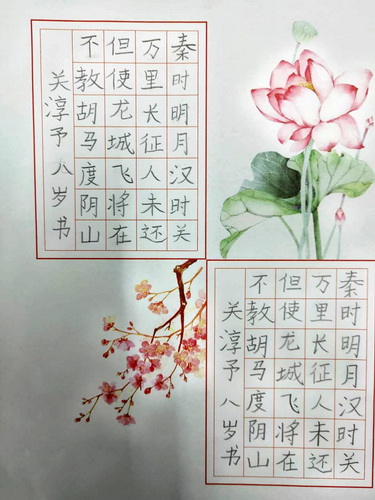 秦时明月汉时关
万里长征人未还
但使龙城飞将在
不教胡马度阴山
关淳予八岁书
秦时明月汉时关
万里长征人未还
但使龙城飞将在
不教胡马度阴山
关淳予八岁书